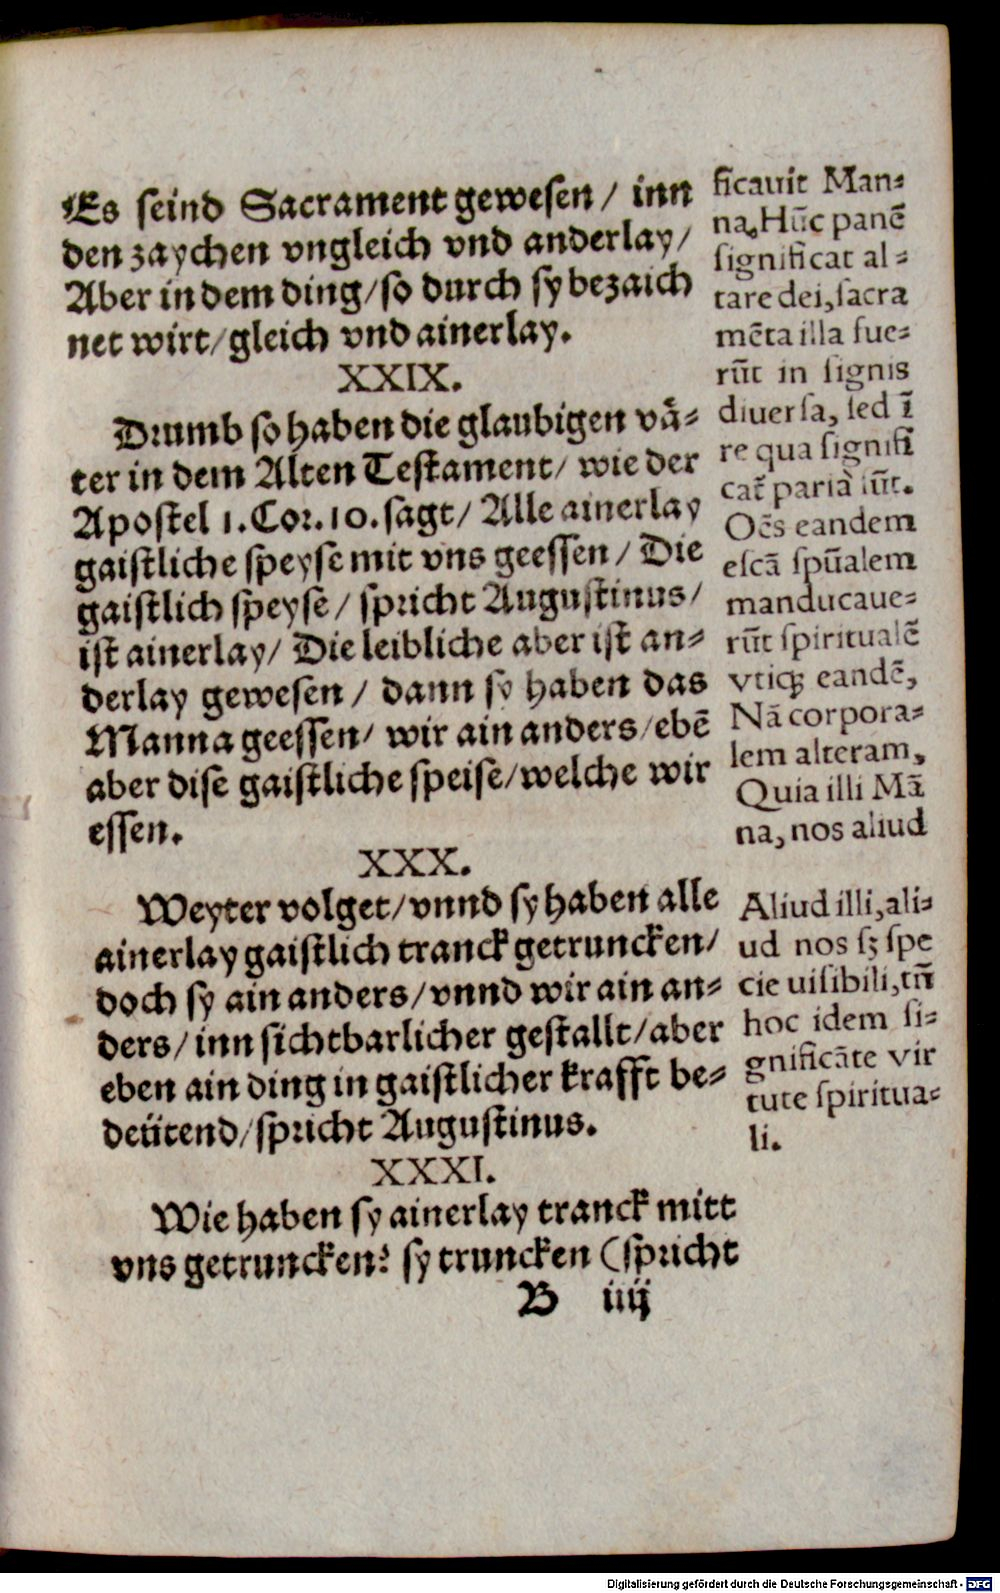 Es seind Sacrament gewesen / inn
den zaychen vngleich vnd anderlay /
Aber in dem ding / so durch sy bezaich
net wirt / gleich vnd ainerlay.
XXIX.
Drumb so haben die glaubigen vaͤ⸗
ter in dem Alten Testament / wie der
Apostel 1. Cor. 10. sagt / Alle ainerlay
gaistliche speyse mit vns geessen / Die
gaistlich speyse / spricht Augustinus /
ist ainerlay / Die leibliche aber ist an⸗
derlay gewesen / dann sy haben das
Manna geessen / wir ain anders / ebē
aber dise gaistliche speise / welche wir
essen.
XXX.
Weyter volget / vnnd sy haben alle
ainerlay gaistlich tranck getruncken /
doch sy ain anders / vnnd wir ain an⸗
ders / inn sichtbarlicher gestallt / aber
eben ain ding in gaistlicher krafft be⸗
deütend / spricht Augustinus.
XXXI.
Wie haben sy ainerlay tranck mitt
vns getruncken? sy truncken (spricht
B iiij
ficauit Man⸗
na. Hūc panē
significat al⸗
tare dei, sacra
mēta illa fue⸗
rūt in signis
diuersa, sed ī
re qua signifi
cat̄ paria sūt.
Oēs eandem
escā spūalem
manducaue⸗
rūt spiritualē
vtiqꝫ eandē,
Nā corpora⸗
lem alteram,
Quia illi Mā
na, nos aliud
Aliud illi, ali⸗
ud nos sꝫ spe
cie uisibili, tn̄
hoc idem si⸗
gnificāte vir
tute spiritua⸗
li.
Digitalisierung gefördert durch die Deutsche Forschungsgemeinschaft - DFG